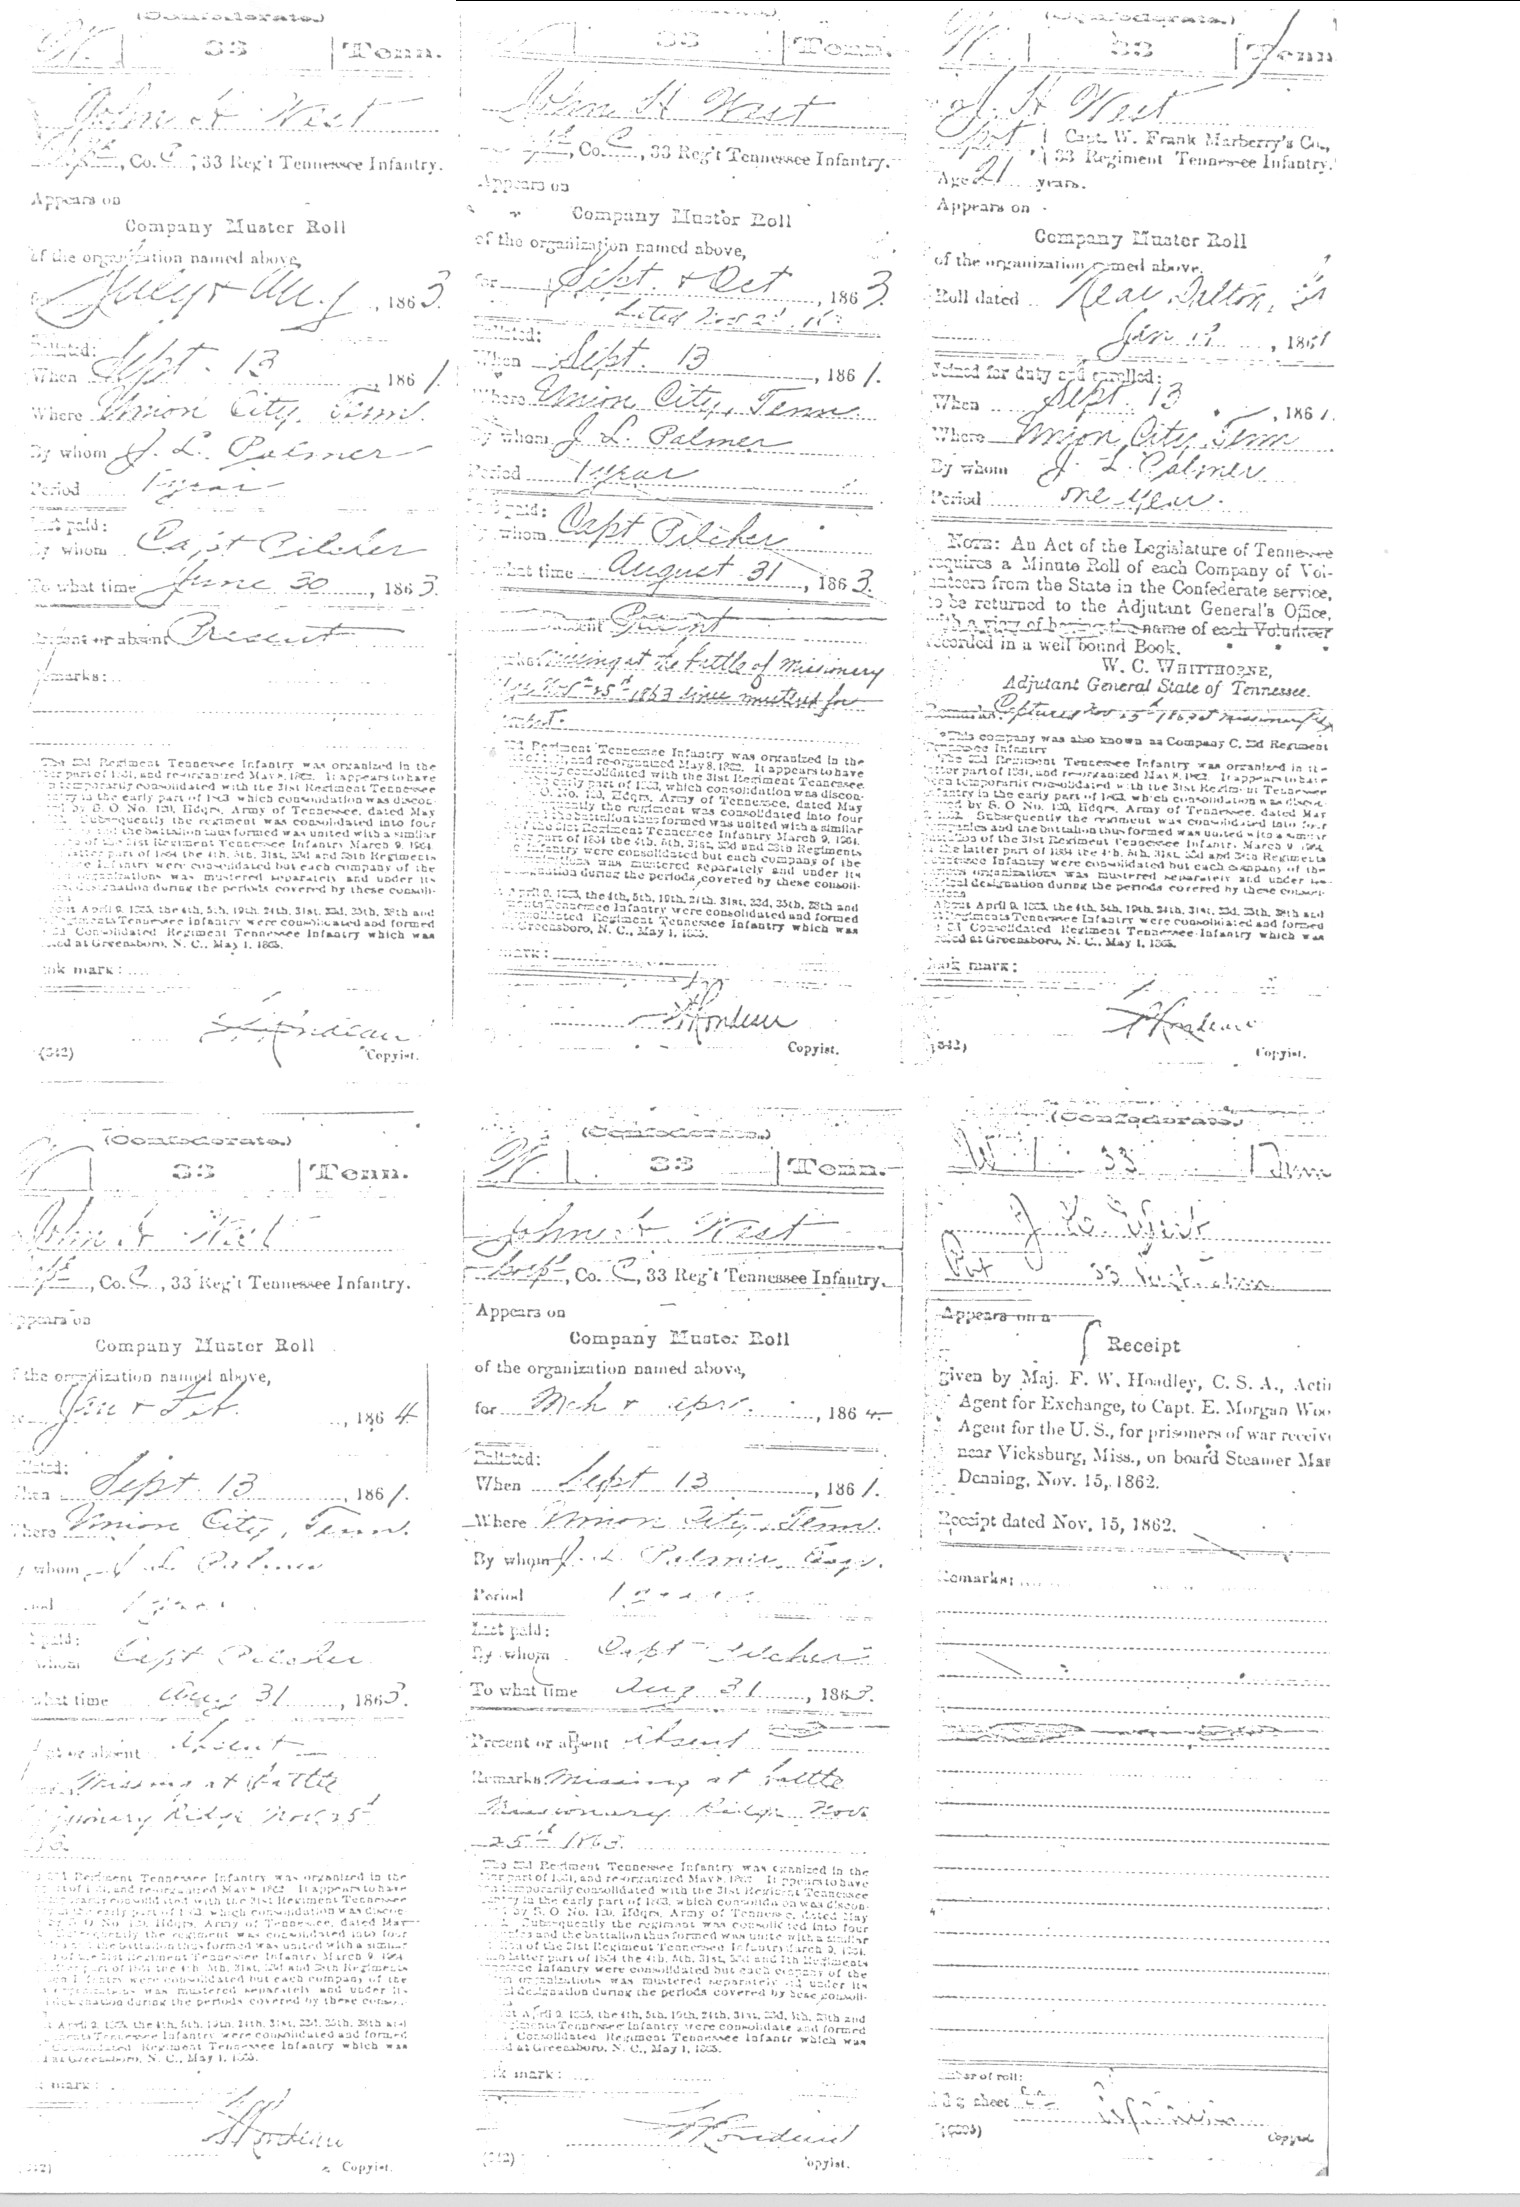 (Confederate.)
W. | 33 | Tenn.
John H West
, Co. C, 33 Reg't Tennessee Infantry.
Appears on
Company Muster Roll
of the organization named above,
July & Aug, 1863.
When Sept. 13, 1861.
Where Union City, Tenn.
By whom J. L. Palmer
Period 1 year
paid:
By whom Capt Pilcher
To what time June 30, 1863.
Present or absent Present
Remarks:
The 33d Regiment Tennessee Infantry was organized in the
part of 1861, and re-organized May 8, 1862. It appears to have
temporarily consolidated with the 31st Regiment Tennessee
in the early part of 1863 which consolidation was discon-
by S. O. No. 120, Hdqrs. Army of Tennessee, dated May
Subsequently the regiment was consolidated into four
and the battalion thus formed was united with a similar
of the 31st Regiment Tennessee Infantry March 9, 1864.
latter part of 1864 the 4th, 5th, 31st, 33d and 35th Regiments
Infantry were consolidated but each company of the
organizations was mustered separately and under its
designation during the periods covered by these consoli-
April 9, 1865, the 4th, 5th, 19th, 24th, 31st, 33d, 35th, 38th and
Tennessee Infantry were consolidated and formed
Consolidated Regiment Tennessee Infantry which was
at Greensboro, N. C., May 1, 1865.
mark:
(342) Copyist.
33 | Tenn.
John H West
, Co. C, 33 Reg't Tennessee Infantry.
Appears on
Company Muster Roll
of the organization named above,
for Sept. & Oct, 1863.
When Sept. 13, 1861.
Where Union City, Tenn
By whom J. L. Palmer
Period 1 year
paid:
By whom Capt Pilcher
what time August 31, 1863.
Missing at the battle of Missionary
25th 1863 since mustered for
Regiment Tennessee Infantry was organized in the
and re-organized May 8, 1862. It appears to have
consolidated with the 31st Regiment Tennessee
early part of 1863, which consolidation was discon-
O. No. 120, Hdqrs. Army of Tennessee, dated May
the regiment was consolidated into four
the battalion thus formed was united with a similar
of the 31st Regiment Tennessee Infantry March 9, 1864.
part of 1864 the 4th, 5th, 31st, 33d and 35th Regiments
Infantry were consolidated but each company of the
organizations was mustered separately and under its
designation during the periods covered by these consoli-
April 9, 1865, the 4th, 5th, 19th, 24th, 31st, 33d, 35th, 38th and
Tennessee Infantry were consolidated and formed
Consolidated Regiment Tennessee Infantry which was
at Greensboro, N. C., May 1, 1865.
mark:
Copyist.
(Confederate.)
W. | 33 | Tenn
J. H West
Capt. W. Frank Marberry's Co.,
33 Regiment Tennessee Infantry.
Age 21 years.
Appears on
Company Muster Roll
of the organization named above.
Roll dated Near Dalton,
Jan, 186
Joined for duty and enrolled:
When Sept. 13, 1861.
Where Union City, Tenn
By whom J. L. Palmer
Period one year.
NOTE: An Act of the Legislature of Tennessee
requires a Minute Roll of each Company of Vol-
unteers from the State in the Confederate service,
to be returned to the Adjutant General's Office,
with a view of having the name of each Volunteer
recorded in a well bound Book.
W. C. WHITTHORNE,
Adjutant General State of Tennessee.
Remarks: Captured Nov 25th 1863 at Missionary
*This company was also known as Company C, 33d Regiment
Tennessee Infantry
The 33d Regiment Tennessee Infantry was organized in
part of 1861, and re-organized May 8, 1862. It appears to have
temporarily consolidated with the 31st Regiment Tennessee
Infantry in the early part of 1863, which consolidation was
by S. O No. 120, Hdqrs. Army of Tennessee, dated
Subsequently the regiment was consolidated into four
companies and the battalion thus formed was united with a similar
of the 31st Regiment Tennessee Infantry March 9, 1864.
the latter part of 1864 the 4th, 5th, 31st, 33d and 35th Regiments
Tennessee Infantry were consolidated but each company of the
organizations was mustered separately and under
designation during the periods covered by these
About April 9, 1865, the 4th, 5th, 19th, 24th, 31st, 33d, 35th, 38th and
Regiments Tennessee Infantry were consolidated and formed
Consolidated Regiment Tennessee Infantry which was
at Greensboro, N. C., May 1, 1865.
Book mark:
(342) Copyist.
(Confederate.)
33 | Tenn.
John H West
, Co. C, 33 Reg't Tennessee Infantry.
Appears on
Company Muster Roll
of the organization named above,
Jan & Feb., 1864
When Sept. 13, 1861.
Where Union City, Tenn.
By whom J L Palmer
1 year
paid:
whom Capt Pilcher
what time Aug 31, 1863.
or absent Absent
Missing at battle
Missionary Ridge Nov. 25th
Regiment Tennessee Infantry was organized in the
of 1861, and re-organized May 8, 1862. It appears to have
temporarily consolidated with the 31st Regiment Tennessee
in the early part of 1863, which consolidation was discon-
by S. O. No. 120, Hdqrs. Army of Tennessee, dated May
Subsequently the regiment was consolidated into four
and the battalion thus formed was united with a similar
of the 31st Regiment Tennessee Infantry March 9, 1864.
latter part of 1864 the 4th, 5th, 31st, 33d and 35th Regiments
Infantry were consolidated but each company of the
organizations was mustered separately and under its
designation during the periods covered by these consoli-
April 9, 1865, the 4th, 5th, 19th, 24th, 31st, 33d, 35th, 38th and
Tennessee Infantry were consolidated and formed
Consolidated Regiment Tennessee Infantry which was
at Greensboro, N. C., May 1, 1865.
mark:
Copyist.
(Confederate.)
W. | 33 | Tenn.
John H West
, Co. C, 33 Reg't Tennessee Infantry.
Appears on
Company Muster Roll
of the organization named above,
for Mch & Apr., 1864
Enlisted:
When Sept 13, 1861.
Where Union City, Tenn.
By whom J. L. Palmer,
Period 1 year
Last paid:
By whom Capt Pilcher
To what time Aug 31, 1863.
Present or absent Absent
Remarks: Missing at battle
Missionary Ridge Nov.
25th 1863.
The 33d Regiment Tennessee Infantry was organized in the
part of 1861, and re-organized May 8, 1862. It appears to have
temporarily consolidated with the 31st Regiment Tennessee
in the early part of 1863, which consolidation was discon-
by S. O. No. 120, Hdqrs. Army of Tennessee, dated May
Subsequently the regiment was consolidated into four
and the battalion thus formed was united with a similar
of the 31st Regiment Tennessee Infantry March 9, 1864.
latter part of 1864 the 4th, 5th, 31st, 33d and 35th Regiments
Infantry were consolidated but each company of the
organizations was mustered separately and under its
designation during the periods covered by these consoli-
April 9, 1865, the 4th, 5th, 19th, 24th, 31st, 33d, 35th, 38th and
Tennessee Infantry were consolidated and formed
Consolidated Regiment Tennessee Infantry which was
at Greensboro, N. C., May 1, 1865.
mark:
(342) Copyist.
(Confederate.)
W | 33 | Tenn
J H West
Pvt 33
Appears on a
Receipt
given by Maj. F. W. Hoadley, C. S. A., Acti
Agent for Exchange, to Capt. E. Morgan Woo
Agent for the U. S., for prisoners of war receive
near Vicksburg, Miss., on board Steamer Mar
Denning, Nov. 15, 1862.
Receipt dated Nov. 15, 1862.
Remarks:
Number of roll:
sheet
Copyist